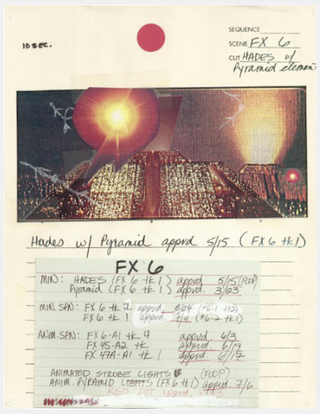 10 SEC.
SEQUENCE
SCENE FX 6
CUT HADES w/
Pyramid element
Hades w/ Pyramid apprvd 5/15 (FX 6 tk 1)
FX 6
MIN: HADES (FX 6 tk 1) apprvd 5/15 (POOP)
Pyramid (FX 6 tk 1) apprvd 3/23
MIN. SPN: FX 6 tk apprvd
FX 6 tk 1 apprvd
ANIM. SPN: FX 6-A1 tk 4 apprvd 6/3
FX 45-A2 tk apprvd 6/19
FX 47A-A1 tk 1 apprvd 6/17
ANIMATED STROBE LIGHTS
ANIM. PYRAMID LIGHTS (FX 6 tk 1) apprvd. 7/6